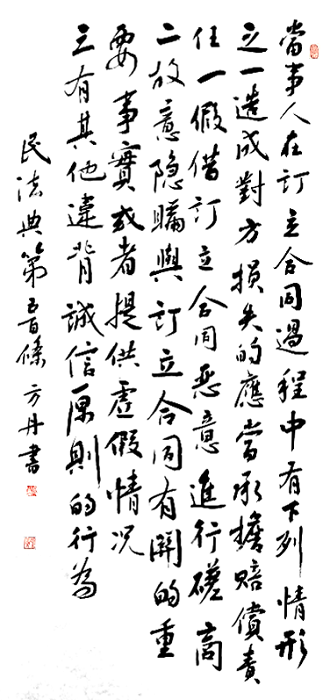 當事人在訂立合同過程中有下列情形
之一造成對方損失的應當承擔賠償責
任一假借訂立合同惡意進行磋商
二故意隐瞞與訂立合同有關的重
要事實或者提供虚假情况
三有其他違背誠信原則的行為
民法典第五百條方丹書